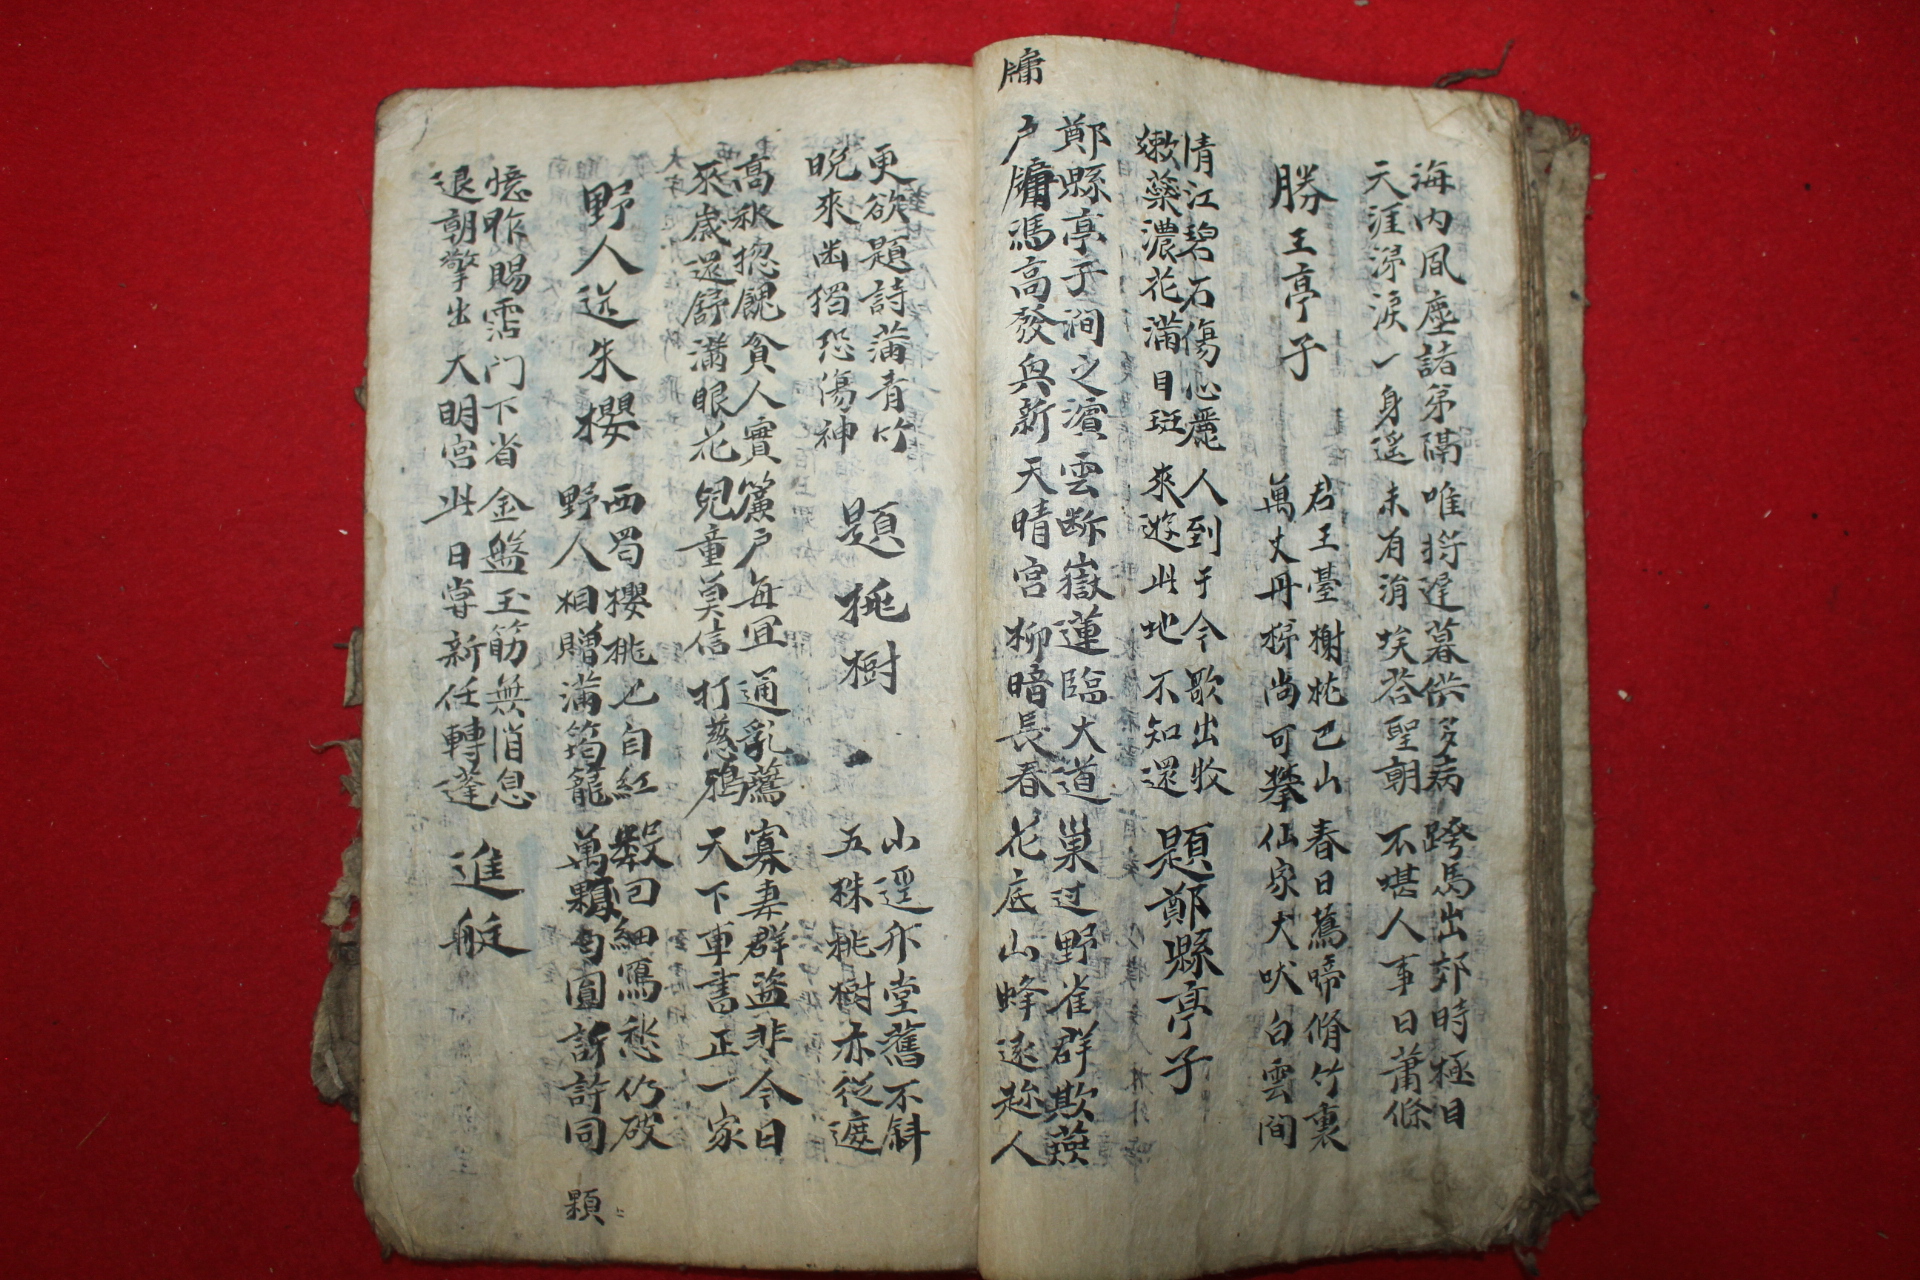 海内風塵諸弟隔 唯将遲暮供多病 跨馬出郊時極目
天涯涕淚一身遥 未有涓埃答聖朝 不堪人事日蕭條
勝王亭子
君王臺榭枕巴山 春日鶯啼脩竹裏
萬丈丹梯尚可攀 仙家犬吠白雲間
情江碧石傷心麗 人到于今歌出牧
嫩藥濃花滿目班 來遊此地不知還
題鄭縣亭子
鄭縣亭子澗之濱 雲断嶽蓮臨大道 巢过野雀群欺燕
牖
戶牖馮高發興新 天晴宫柳暗長春 花底山蜂遠趂人
更欲題詩滿青竹
晩來幽獨恐傷神
題桃樹
小逕升堂舊不斜
五株桃樹亦從遮
高秋揔餽貧人實 簾戶每宜通乳鷰 寡妻群盗非今日
來歳還舒滿眼花 兒童莫信打慈鴉 天下車書正一家
野人送朱櫻
西蜀櫻桃也自紅 數回細寫愁仍破
野人相贈滿筠籠 萬顆匀圓訝許同
顆
憶昨賜霑门下省 金盤玉筋無消息
退朝擎出大明宫 此日嘗新任轉蓬
進艇